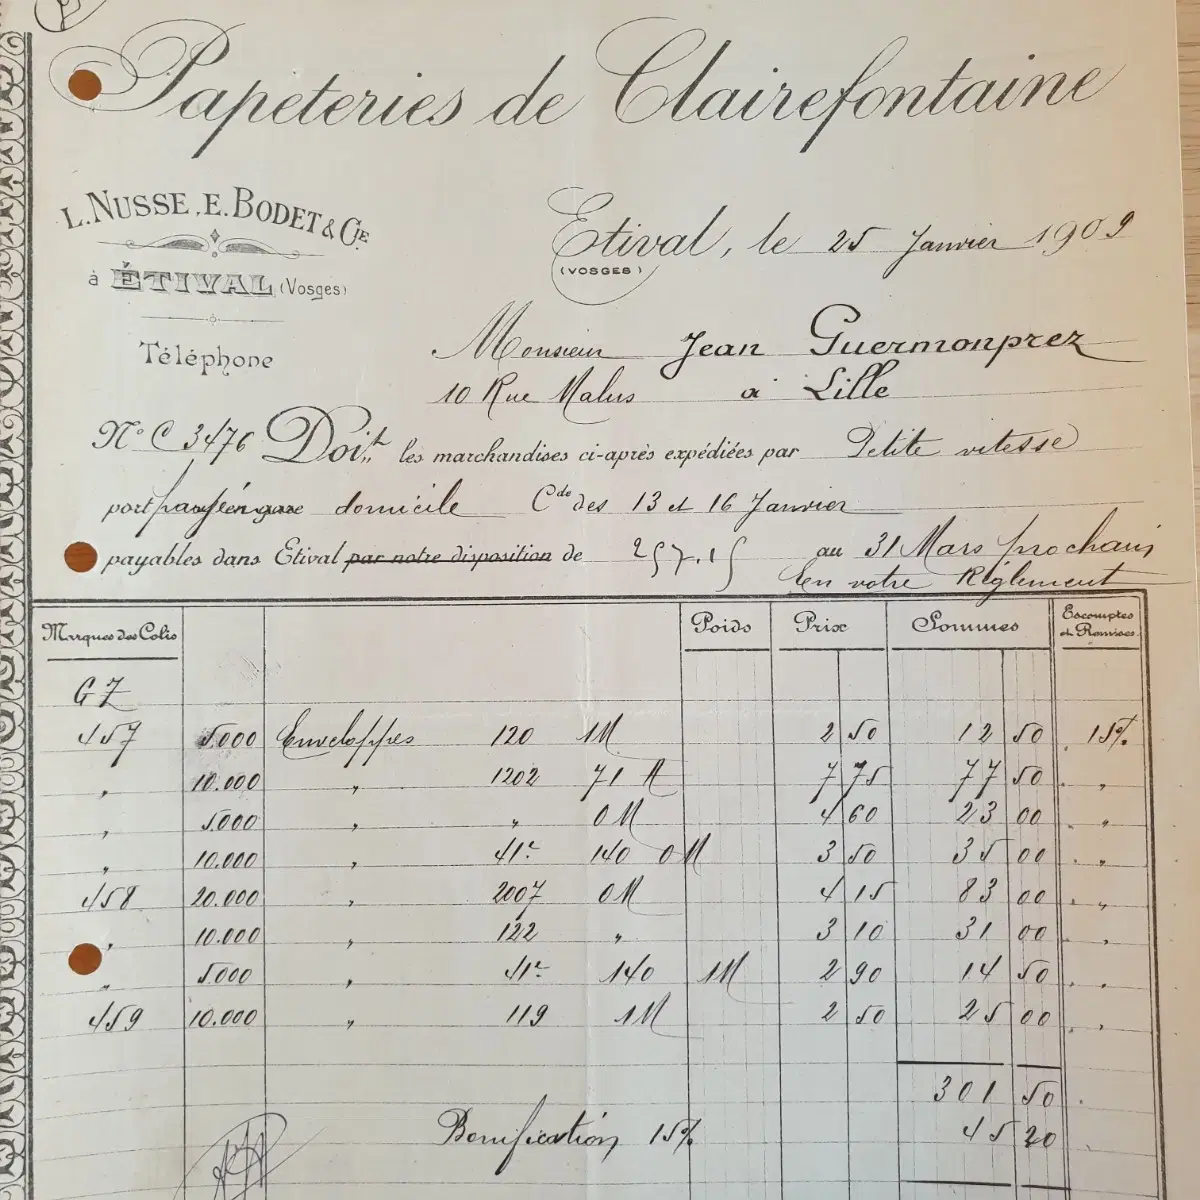 Papeteries de Clairefontaine
L. NUSSE, E. BODET & CIE
à ÉTIVAL (Vosges)
Téléphone
Etival, le 25 Janvier 1909
(VOSGES)
Monsieur Jean Guermonprez
10 Rue Malus à Lille
No C 3476 Doit les marchandises ci-après expédiées par Petite vitesse
port payé en gare domicile Cde des 13 et 16 Janvier
payables dans Etival par notre disposition de 257.15 au 31 Mars prochain
En votre Règlement
Marques des Colis Poids Prix Sommes Escomptes et Remises
GZ
457 5.000 Enveloppes 120 1M 2 50 12 50 15%
" 10.000 " 1202 71 M 7 75 77 50 "
" 5.000 " " 0M 4 60 23 00 "
" 10.000 " 41r 140 0M 3 50 35 00 "
458 20.000 " 2007 0M 4 15 83 00 "
" 10.000 " 122 " 3 10 31 00 "
" 5.000 " 41r 140 1M 2 90 14 50 "
459 10.000 " 119 1M 2 50 25 00 "
301 50
Bonification 15% 45 20